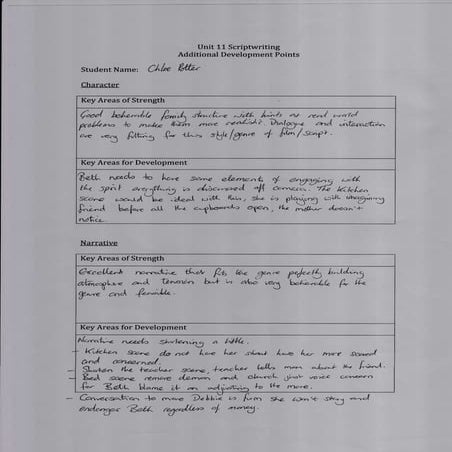 Unit 11 Scriptwriting
Additional Development Points
Student Name: Chloe Potter
Character
Key Areas of Strength
Good believable family structure with hints at real world
problems to make them more realistic. Dialogue and interaction
are very fitting for this style/genre of film/script.
Key Areas for Development
Beth needs to have some elements of engaging with
the spirit everything is discussed off camera. The kitchen
scene would be ideal with this, she is playing with imaginary
friend before all the cupboards open, the mother doesn't
notice.
Narrative
Key Areas of Strength
Excellent narrative that fits the genre perfectly building
atmosphere and tension but is also very believable for the
genre and feasible.
Key Areas for Development
Narrative needs shortening a little.
- Kitchen scene do not have her shout have her more scared
and concerned.
- Shorten the teacher scene, teacher tells mam about the friend.
- Bed scene remove demon and church just voice concern
for Beth blame it on adjusting to the move.
- Conversation to move Debbie is firm she won't stay and
endanger Beth regardless of money.